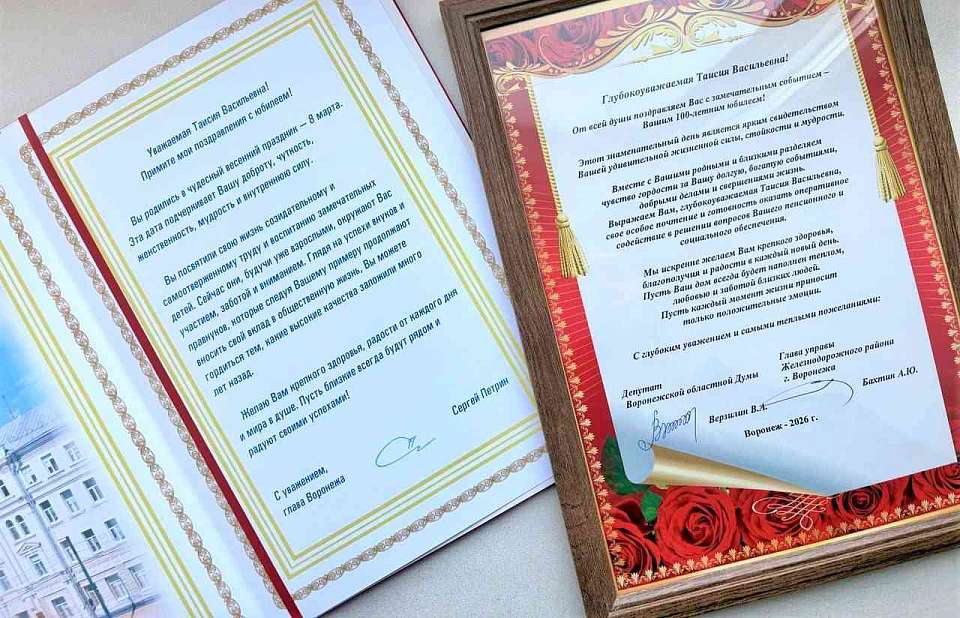 Уважаемая Таисия Васильевна!
Примите мои поздравления с юбилеем!
Вы родились в чудесный весенний праздник — 8 марта.
Эта дата подчеркивает Вашу доброту, чуткость,
женственность, мудрость и внутреннюю силу.
Вы посвятили свою жизнь созидательному и
самоотверженному труду и воспитанию замечательных
детей. Сейчас они, будучи уже взрослыми, окружают Вас
участием, заботой и вниманием. Глядя на успехи внуков и
правнуков, которые следуя Вашему примеру продолжают
вносить свой вклад в общественную жизнь, Вы можете
гордиться тем, какие высокие качества заложили много
лет назад.
Желаю Вам крепкого здоровья, радости от каждого дня
и мира в душе. Пусть близкие всегда будут рядом и
радуют своими успехами!
С уважением,
глава Воронежа
Сергей Петрин
Глубокоуважаемая Таисия Васильевна!
От всей души поздравляем Вас с замечательным событием –
Вашим 100-летним юбилеем!
Этот знаменательный день является ярким свидетельством
Вашей удивительной жизненной силы, стойкости и мудрости,
Вместе с Вашими родными и близкими разделяем
чувство гордости за Вашу долгую, богатую событиями,
добрыми делами и свершениями жизнь.
Выражаем Вам, глубокоуважаемая Таисия Васильевна,
свое особое почтение и готовность оказать оперативное
содействие в решении вопросов Вашего пенсионного и
социального обеспечения.
Мы искренне желаем Вам крепкого здоровья,
благополучия и радости в каждый новый день.
Пусть Ваш дом всегда будет наполнен теплом,
любовью и заботой близких людей.
Пусть каждый момент жизни приносит
только положительные эмоции.
С глубоким уважением и самыми теплыми пожеланиями:
Депутат
Воронежской областной Думы
Верзилин В.А.
Глава управы
Железнодорожного района
г. Воронежа
Бахтин А.Ю.
Воронеж - 2026 г.